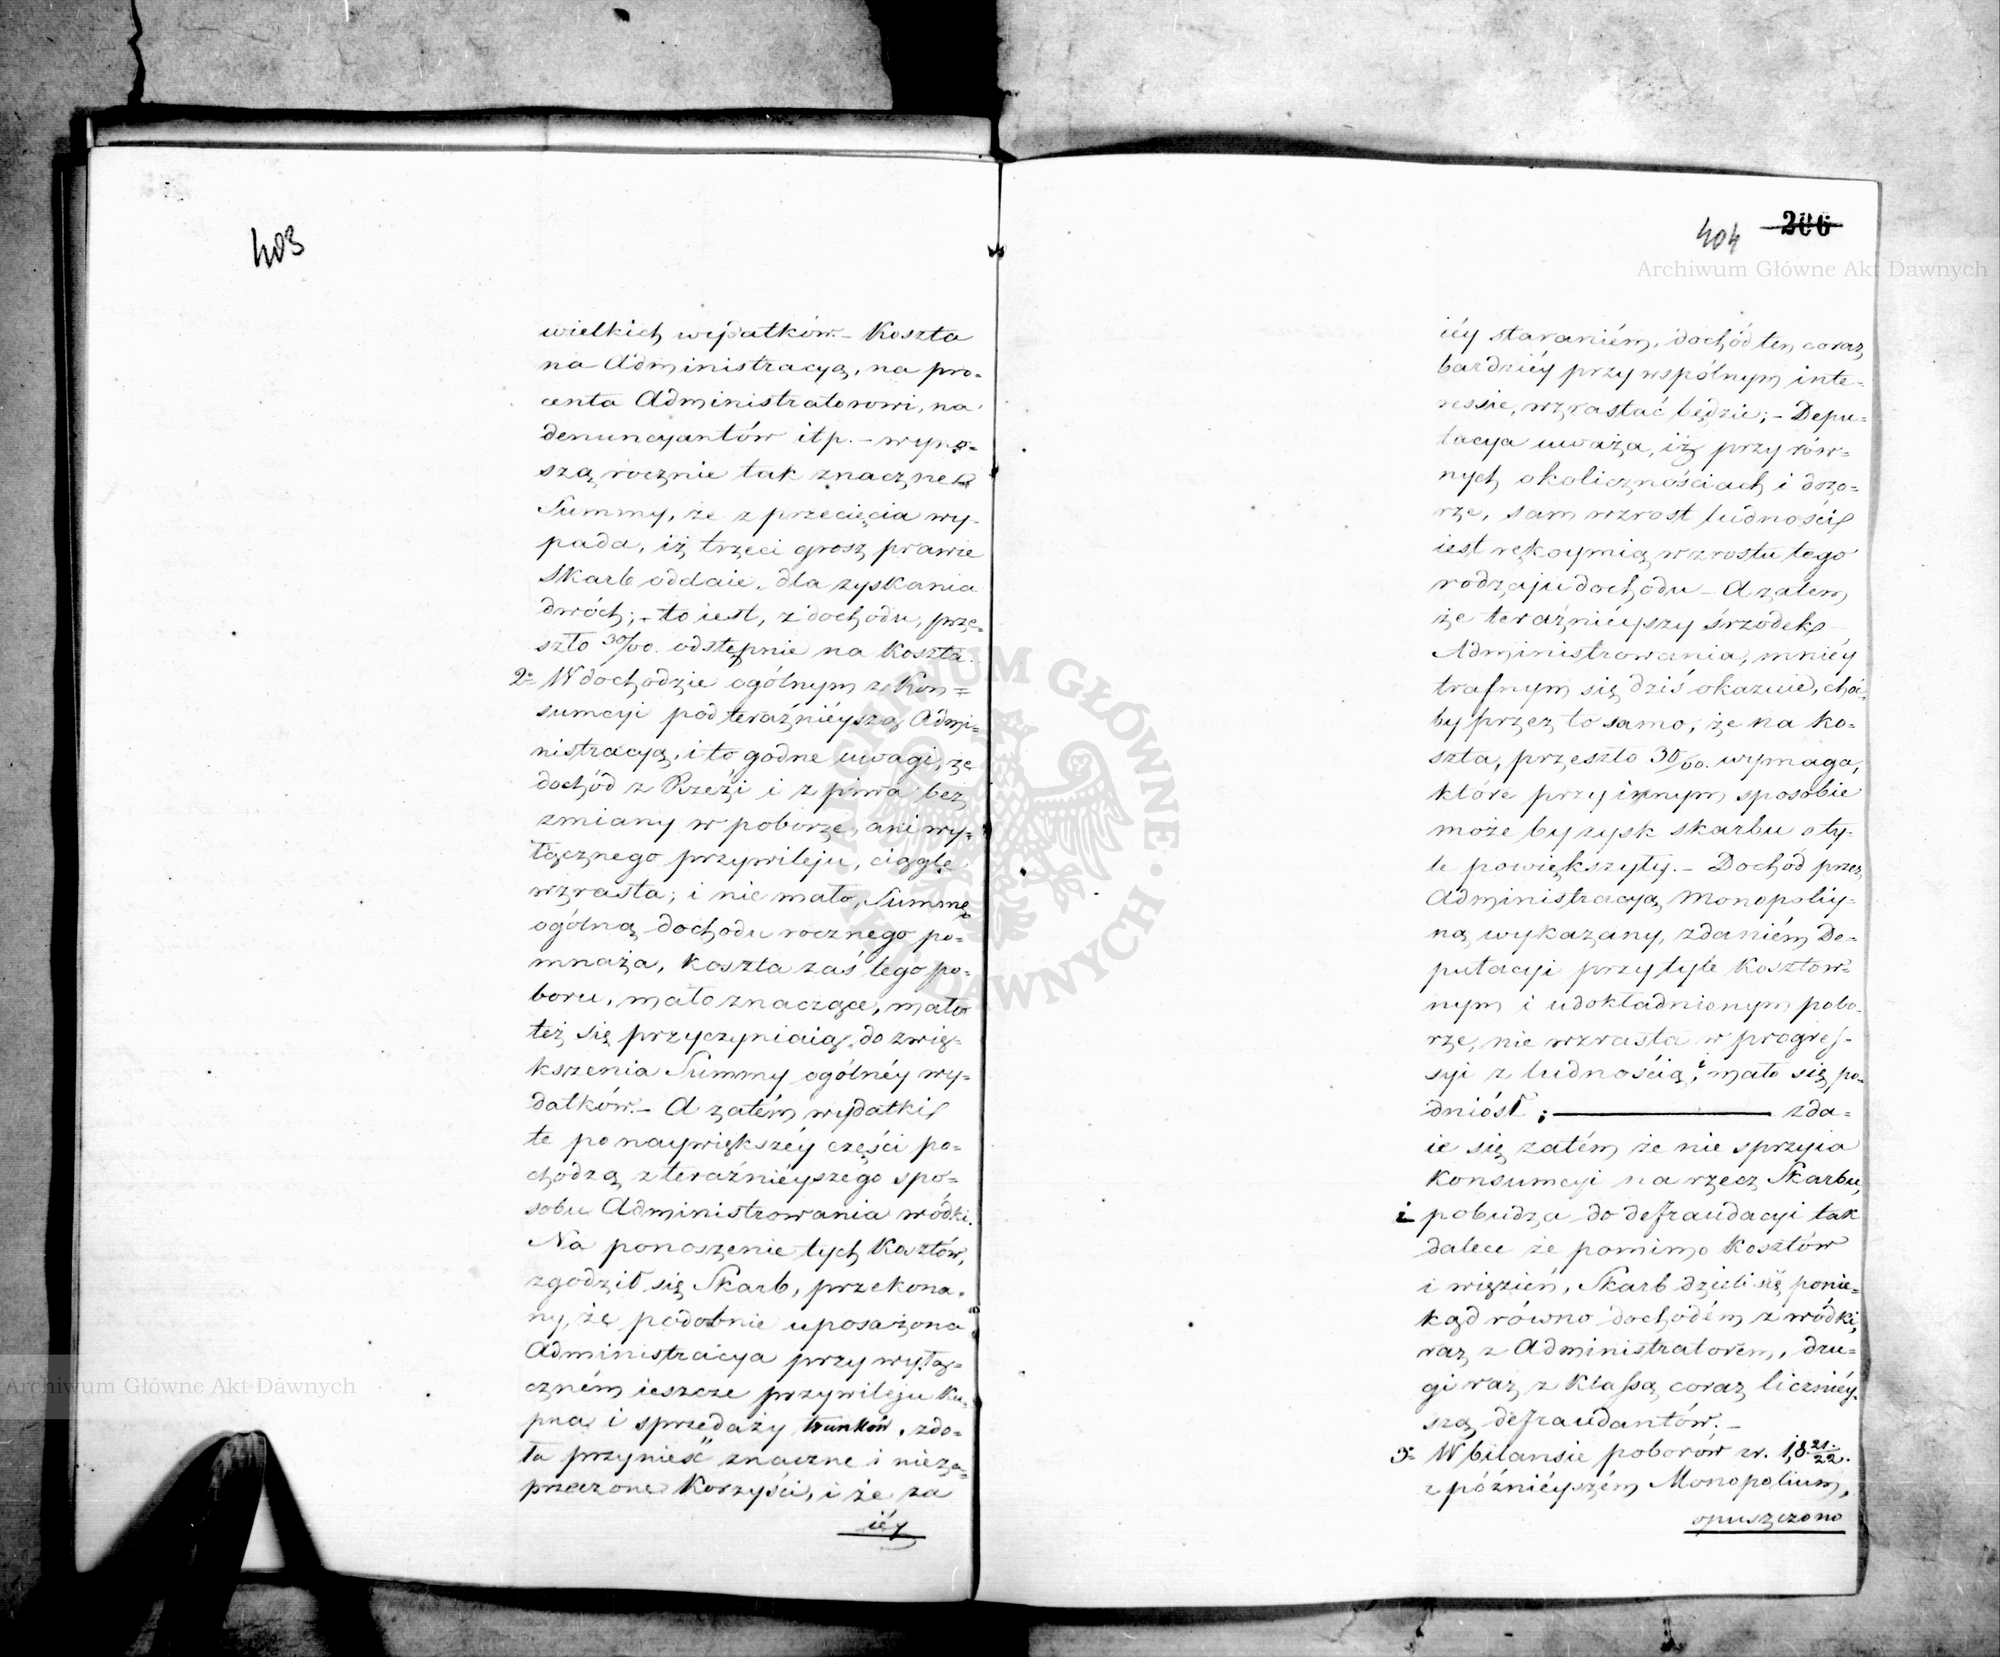 403
wielkich wydatków. – Koszta
na Administracyą, na pro-
centa Administratorowi, na
denuncyantów itp. – wyno-
szą rocznie tak znaczne
Summy, że z przecięcia wy-
pada, iż trzeci grosz prawie
Skarb oddaie, dla zyskania
dwóch; – to iest, z dochodu, prze-
szło 30/00. odstępnie na Koszta.
2o W dochodzie ogólnym z Kon-
sumcyi pod teraźnieyszą Admi-
nistracyą, i to godne uwagi, że
dochód z Rzezi i z piwa bez
zmiany w poborze, ani wy-
łącznego przywileju, ciągle
wzrasta; i nie mało, Summę
ogólną dochodu rocznego po-
mnaża, Koszta zaś tego po-
boru, mało znaczące, mało
też się przyczyniaią, do zwię-
kszenia Summy ogólnéy wy-
datków. – A zatém wydatki
te po naywiększéy części po-
chodzą z teraźniéyszego spo-
sobu Administrowania wódki.
Na ponoszenie tych Kosztów,
zgodził się Skarb, przekona-
ny, że podobnie uposażona
Administracya przy wyłą-
czném ieszcze przywileju Ku-
pna i sprzedaży trunków, zdo-
ła przynieść znaczne i nieza-
przeczone Korzyści, i że za
iéy
404 206
iéy staraniém, dochód ten coraz
bardziéy przy wspólnym inte-
ressie, wzrastać będzie; – Depu-
tacya uważa, iż przy rów-
nych okolicznościach i dozo-
rze, sam wzrost ludności
iest rękoymią wzrostu tego
rodzaju dochodu – A zatem
że teraźniéyszy śrzodek
Administrowania, mniéy
trafnym się dziś okazuie, cho-
by przez to samo, że na ko-
szta, przeszło 30/00. wymaga,
które przy innym sposobie
może by zysk skarbu o ty-
le powiększyły. – Dochód przez
Administracyą Monopoliy-
ną wykazany, zdaniém De-
putacyi przy tyle Kosztow-
nym i udokładnionym pobo-
rze, nie wzrasta w progres-
syi z ludnością, i mało się po-
dniósł; zda-
ie się zatém że nie sprzyia
Konsumcyi na rzecz Skarbu,
i pobudza do defraudacyi tak
dalece że pomimo Kosztów
i więzień, Skarb dzieli się ponie-
kąd równo dochodém z wódki,
raz z Administratorem, dru-
gi raz z Klassą coraz liczniéy-
szą defraudantów. –
3o W bilansie poborów z r. 18 21/22.
z późniéyszém Monopolium,
opuszczono
Archiwum Główne Akt Dawnych
Archiwum Główne Akt Dawnych
ARCHIWUM GŁÓWNE AKT DAWNYCH